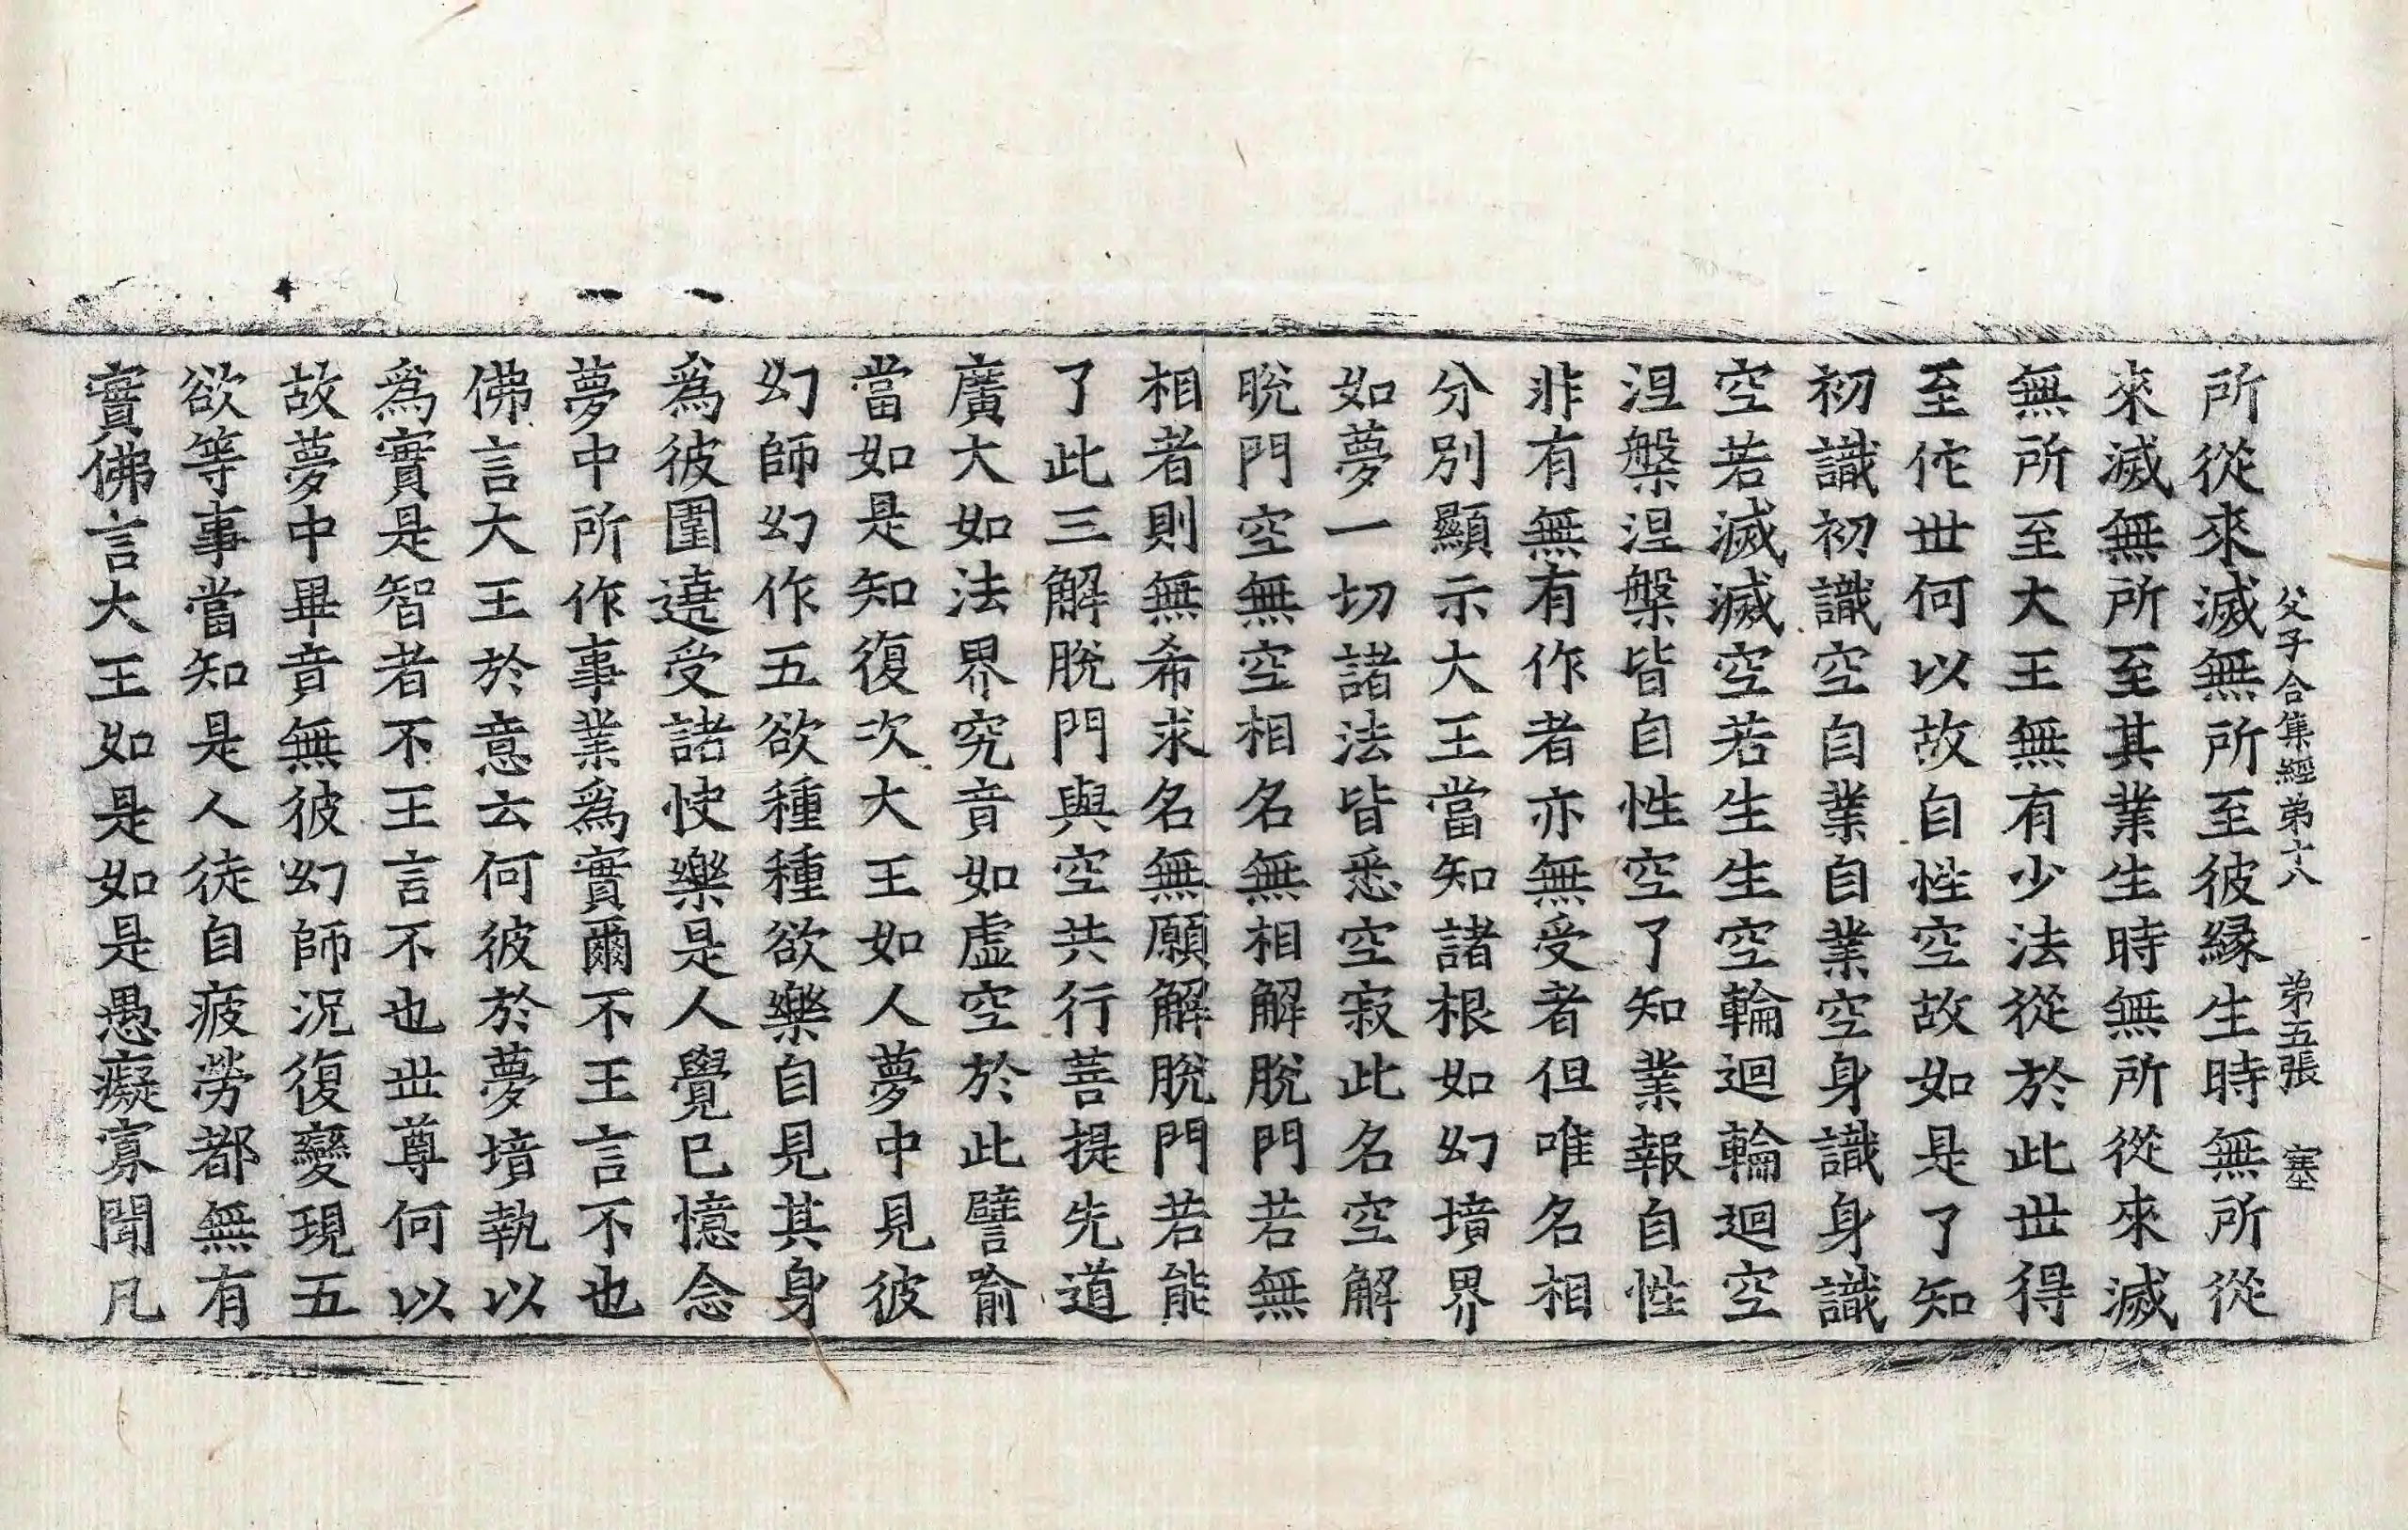 父子合集經弟十八　弟五張　塞
所從來滅無所至彼緣生時無所從
來滅無所至其業生時無所從來滅
無所至大王無有少法從於此世得
至佗世何以故自性空故如是了知
初識初識空自業自業空身識身識
空若滅滅空若生生空輪迴輪迴空
涅槃涅槃皆自性空了知業報自性
非有無有作者亦無受者但唯名相
分別顯示大王當知諸根如幻墳界
如夢一切諸法皆悉空寂此名空解
脫門空無空相名無相解脫門若無
相者則無希求名無願解脫門若能
了此三解脫門與空共行菩提先道
廣大如法界究竟如虛空於此譬喻
當如是知復次大王如人夢中見彼
幻師幻作五欲種種欲樂自見其身
爲彼圍遶受諸快樂是人覺已憶念
夢中所作事業爲實爾不王言不也
佛言大王於意云何彼於夢境執以
爲實是智者不王言不也世尊何以
故夢中畢竟無彼幻師況復變現五
欲等事當知是人徒自疲勞都無有
實佛言大王如是如是愚癡寡聞凡